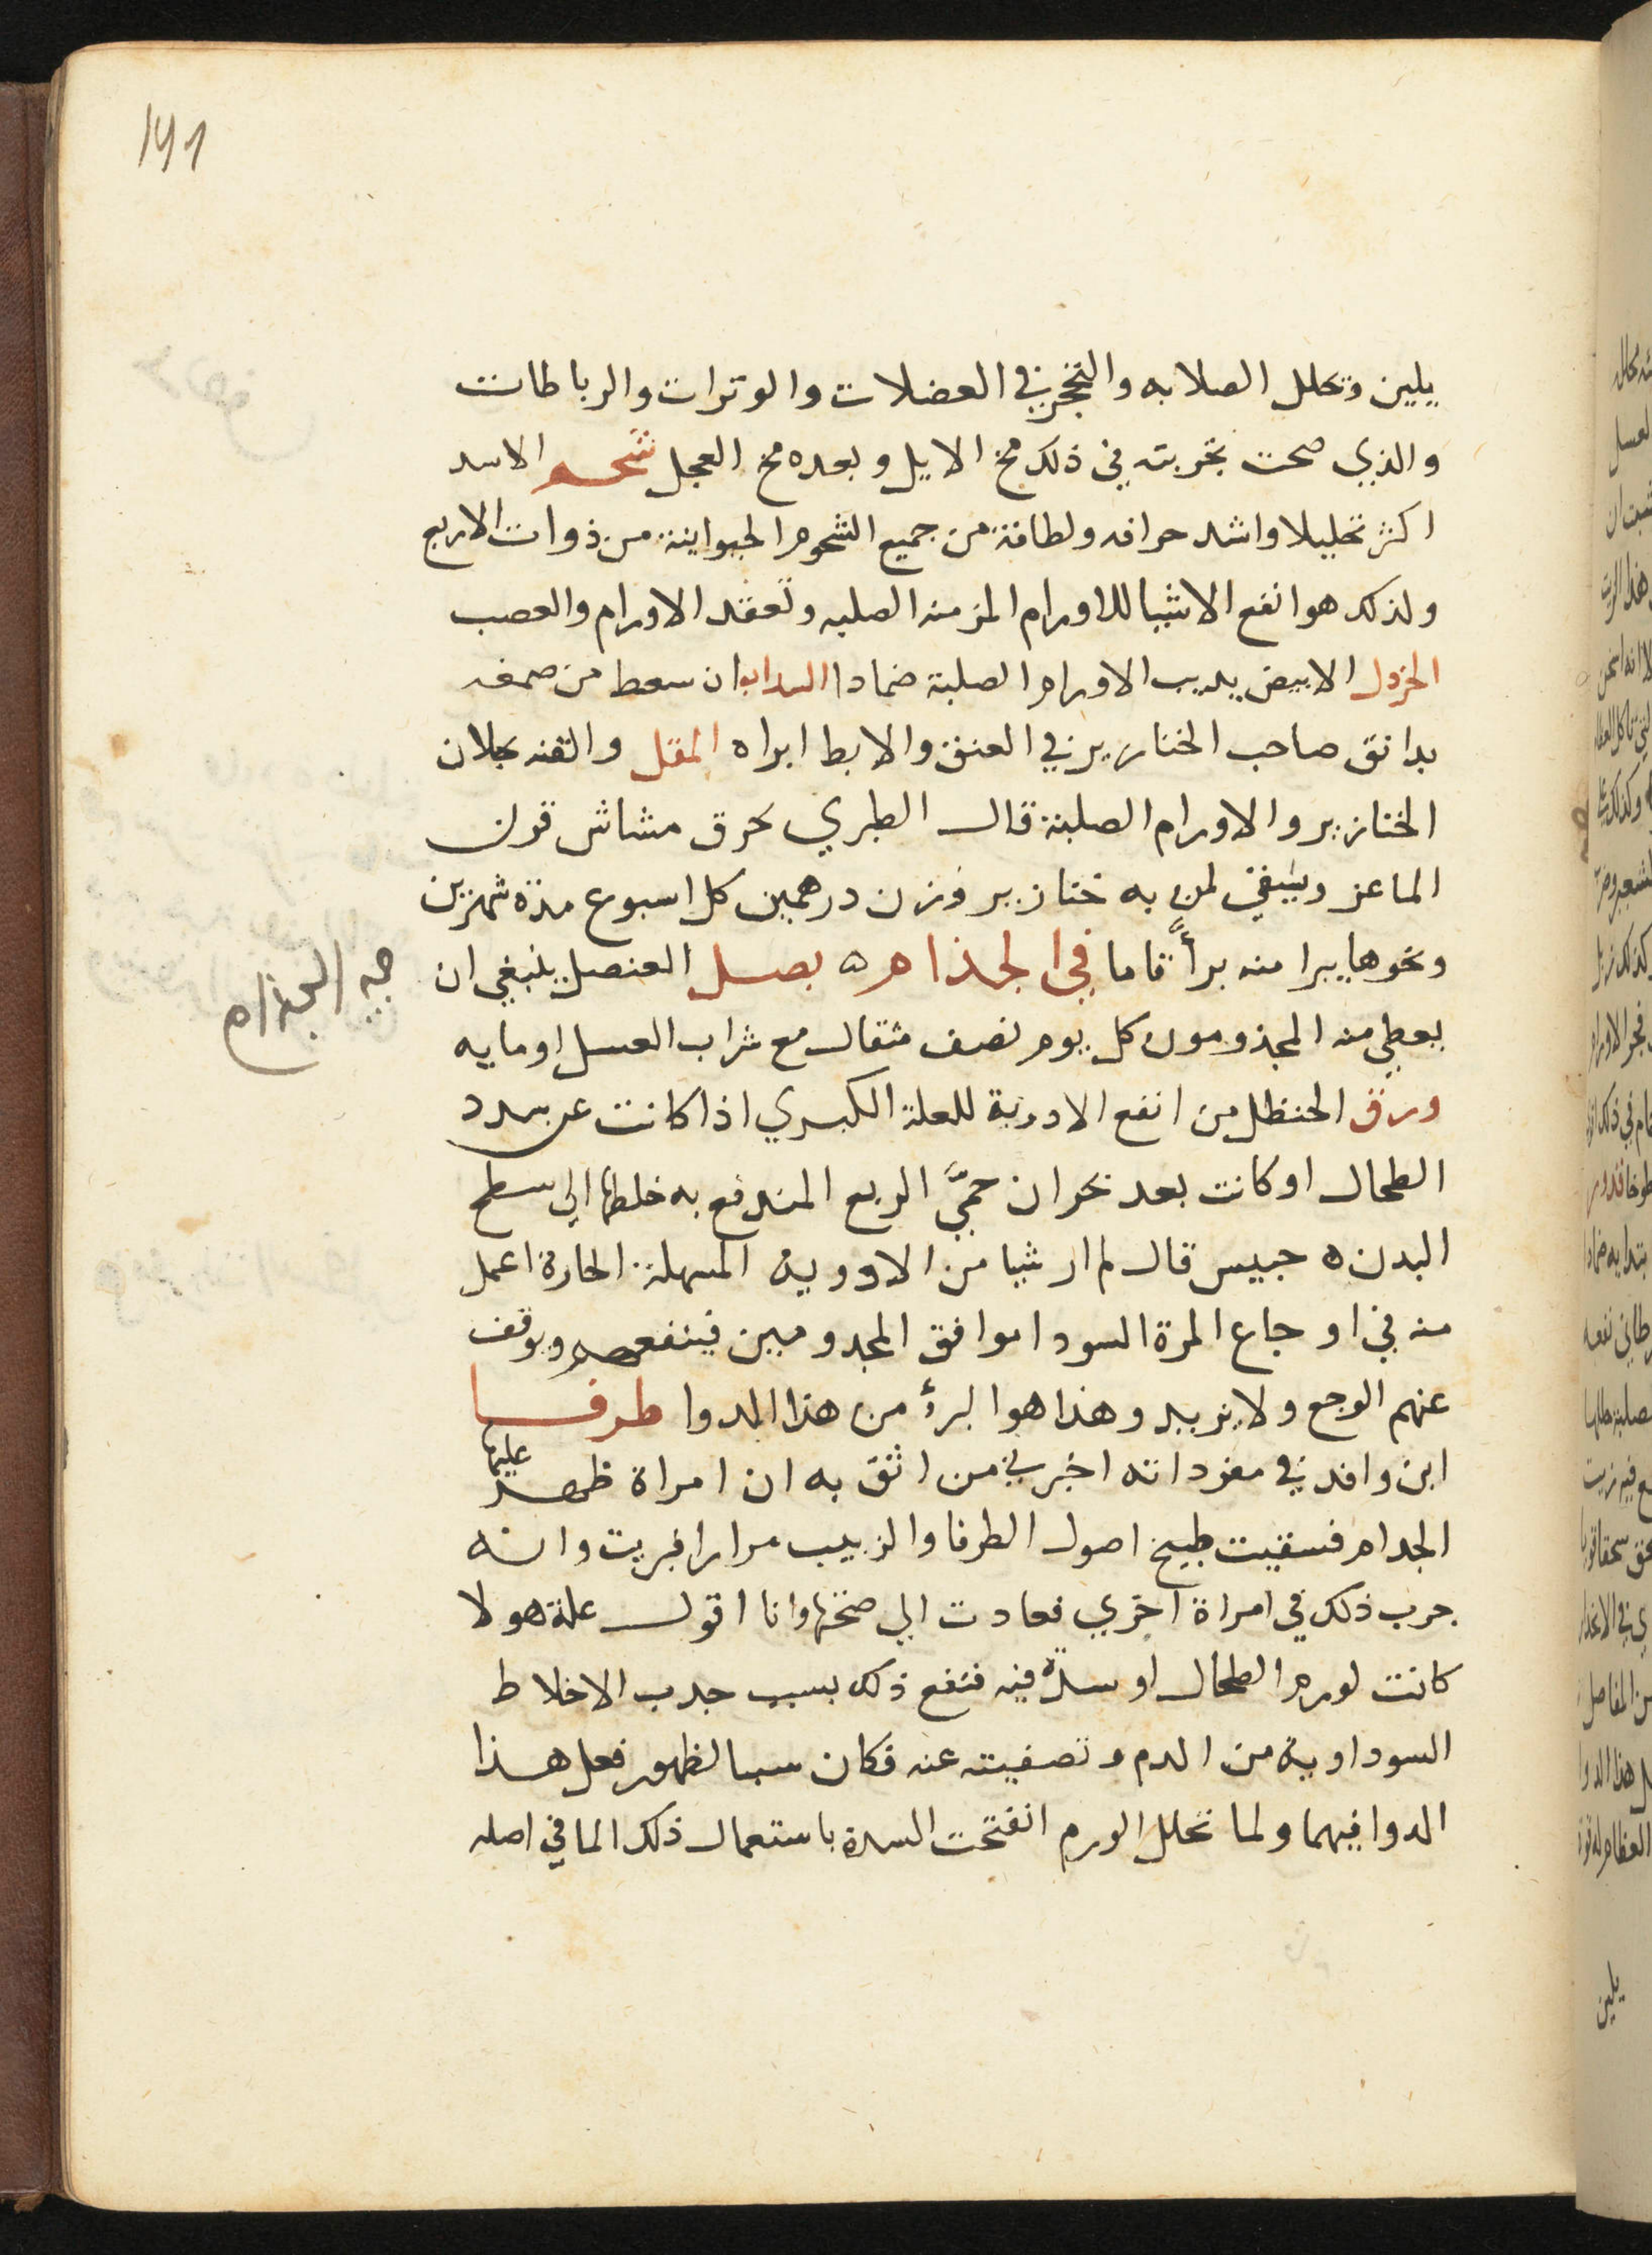 191
يلين وتحلل الصلابه والتحجر في العضلات والوترات والرباطات
والذي صحت تجربته في ذلك مخ الايل وبعده مخ العجل شحم الاسد
اكثر تحليلا واشد حرافه ولطافة من جميع الشحوم الحيوانية من ذوات الاربع
ولذلك هو انفع الاشيا للاورام المزمنه الصلبه وتعقد الاورام والعصب
الخردل الابيض يذيب الاورام الصلبة ضمادا السداب ان سعط من صمغه
بدانق صاحب الخنازير في العنق والابط ابراه المقل والقنه يحلان
الخنازير والاورام الصلبة قال الطبري يحرق مشاش قرن
الماعز ويسقي لمن به خنازير وزن درهمين كل اسبوع مدة شهرين
ونحوها يبرا منه برأً تاما في الجذام ه بصل العنصل ينبغي ان
يعطي منه المجذومون كل يوم نصف مثقال مع شراب العسل او مايه
في الجذام
ورق الحنظل من انفع الادوية للعلة الكبري اذا كانت عن سدد
الطحال او كانت بعد بحران حمَّي الربع المندفع به خلطها الي سطح
البدن ه حبيس قال لم ار شيا من الادوية المسهلة الحارة اعمل
منه في اوجاع المرة السودا موافق المجدومين فينفعهم ويوقف
عنهم الوجع ولا يزيد وهذا هو البرؤ من هذا الدوا طرفا
ابن وافد في مفرداته اخبرني من اثق به ان امراة ظهر عليها
الجدام فسقيت طبيخ اصول الطرفا والزبيب مرارا فبريت وانه
جرب ذلك في امراة اخري فعادت الي صحتها وانا اقول علة هولا
كانت لورم الطحال او سدّة فيه فنفع ذلك بسبب جدب الاخلاط
السوداوية من الدم وتصفيته عنه فكان سببا لظهور فعل هذا
الدوا فيهما ولما تحلل الورم انفتحت السدة باستعمال ذلك الما في اصله
يلين